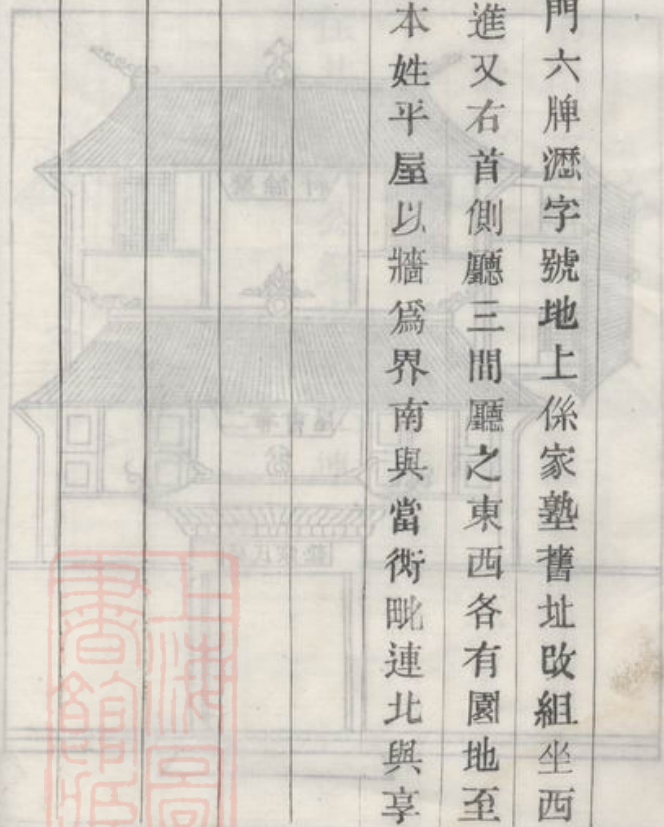 門六牌灑字號地上係家塾舊址改組坐西
進又右首側廳三間廳之東西各有園地至
本姓平屋以牆爲界南與當衖毗連北與享
上海圖
書館藏